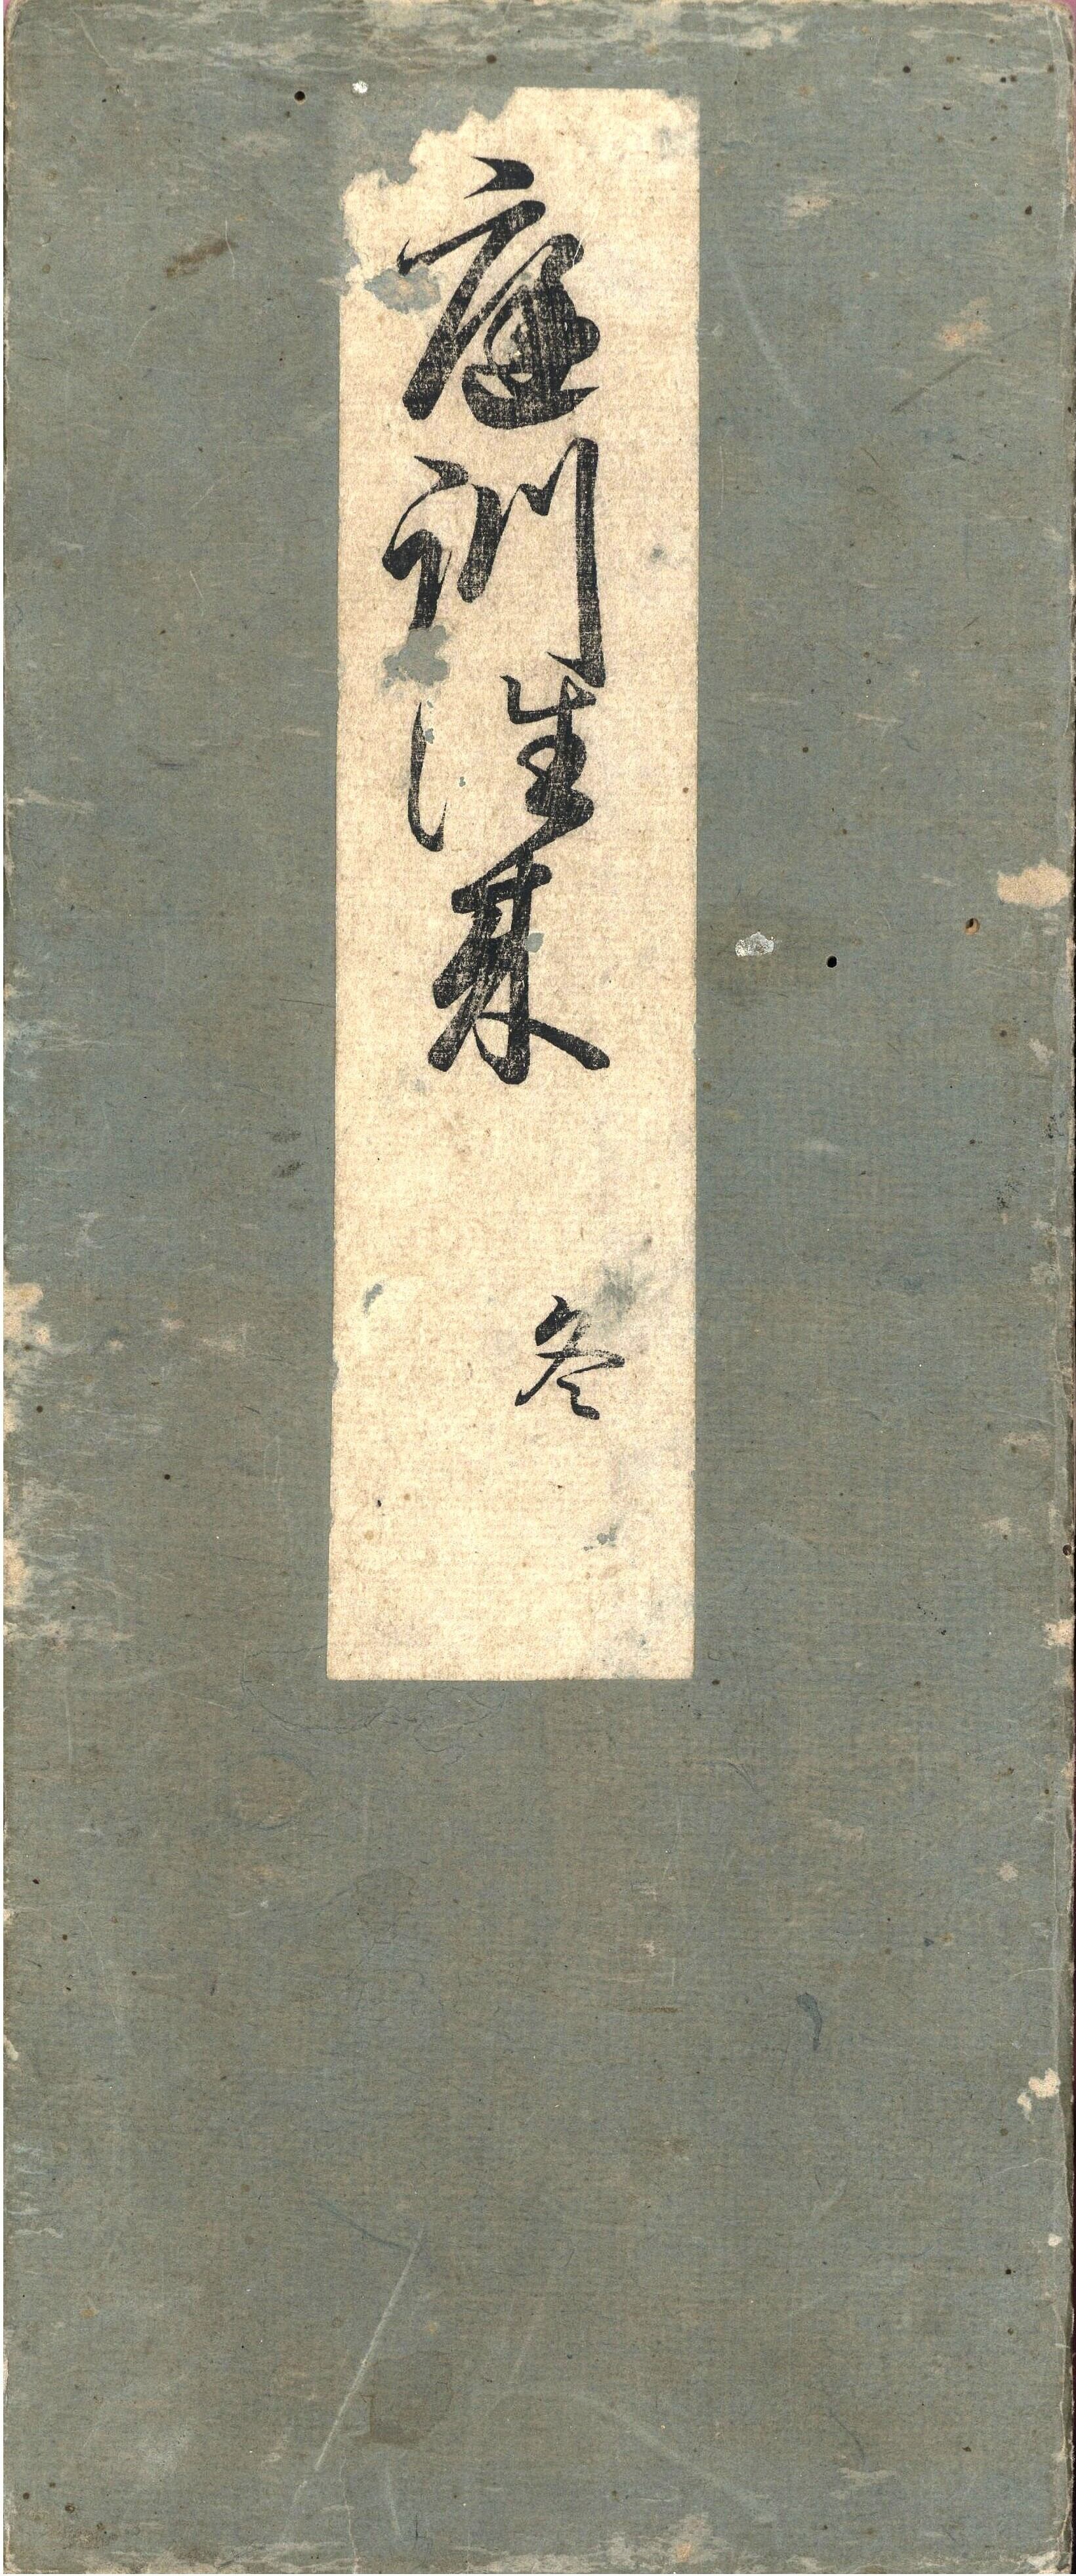 庭訓往来
冬